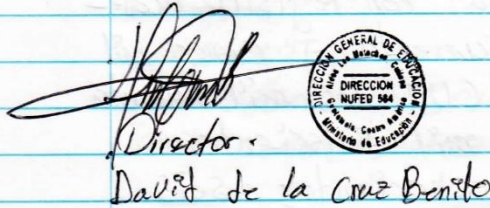 DIRECCION GENERAL DE EDUCACION
Aldea Las
DIRECCION
NUFED 584
Guatemala, Centro America
- Ministerio de Educación -
Director.
David de la Cruz Benito